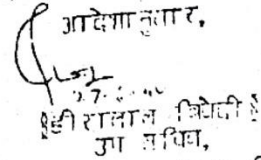 आदेशानुसार,
हीरालाल त्रिवेदी
उप सचिव,